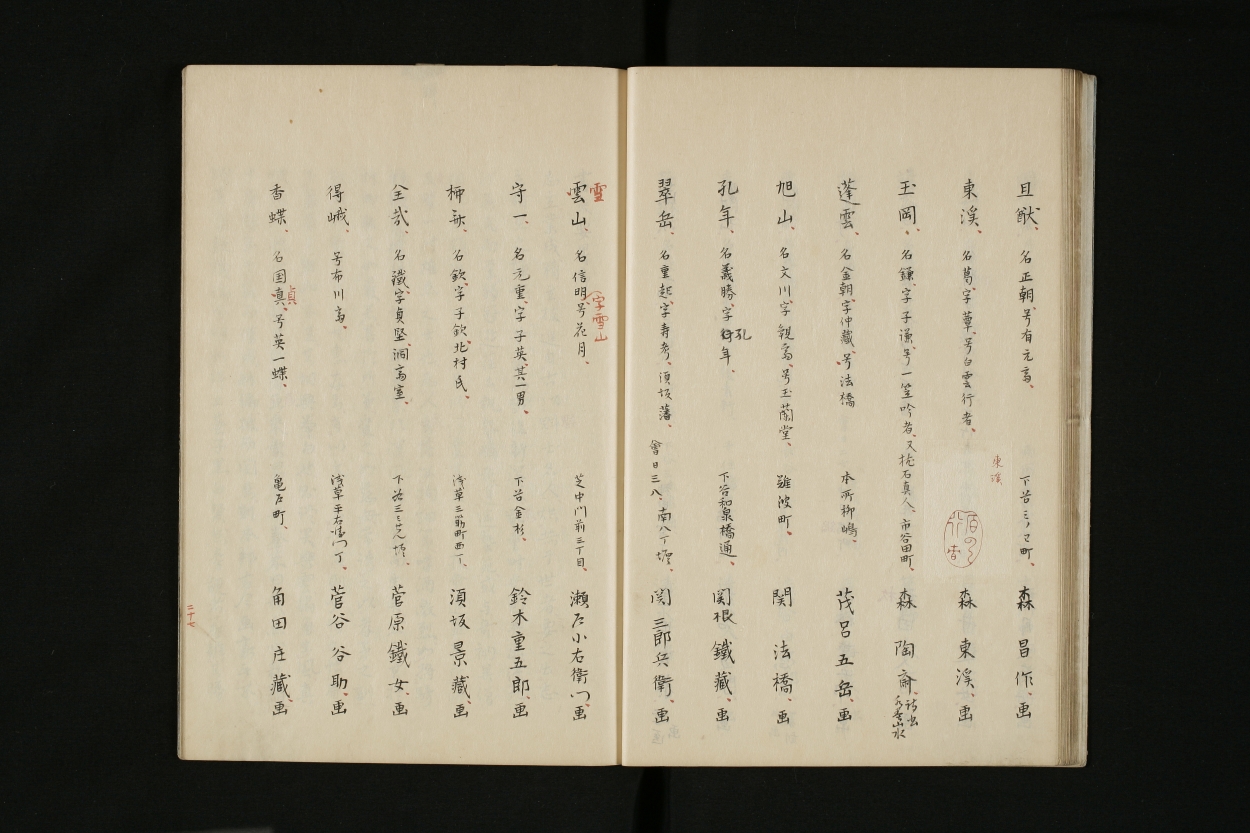 且猷、名正朝、号有元斎、下谷三ノワ町、森昌作、画
東渓、名蔿、字蕈、号白雲行者、森東渓、画
東渓
玉岡、名鎌、字子谦、号一笠吟者、又枕石真人、市谷田町、森陶斎
蓬雲、名金朝、字仲蔵、号法橋 本所柳嶋、茂呂五岳、画
旭山、名文川、字親斎、号玉蘭堂、難波町、関法橋、画
孔年、名義勝、字孔年、下谷和泉橋通、関根鐵蔵、画
翠岳、名重起、字寿考、須坂藩、會日三八、南八丁堀、関三郎兵衛、画
雪
雲山、名信明、号花月、芝中門前三丁目、瀬戸小右衛門、画
字雪山
守一、名元重、字子英、其一男、下谷金杉、鈴木重五郎、画
名欽、字子欽、北村氏、浅草三筋町西丁、須坂景蔵、画
全弐、名鐵、字貞堅、洞斎室、菅原鐵女、画
得峨、号布川斎、浅草平右衛門丁、菅谷谷助、画
香蝶、名国真、号英一蝶、亀戸町、角田庄蔵、画
貞
二十七